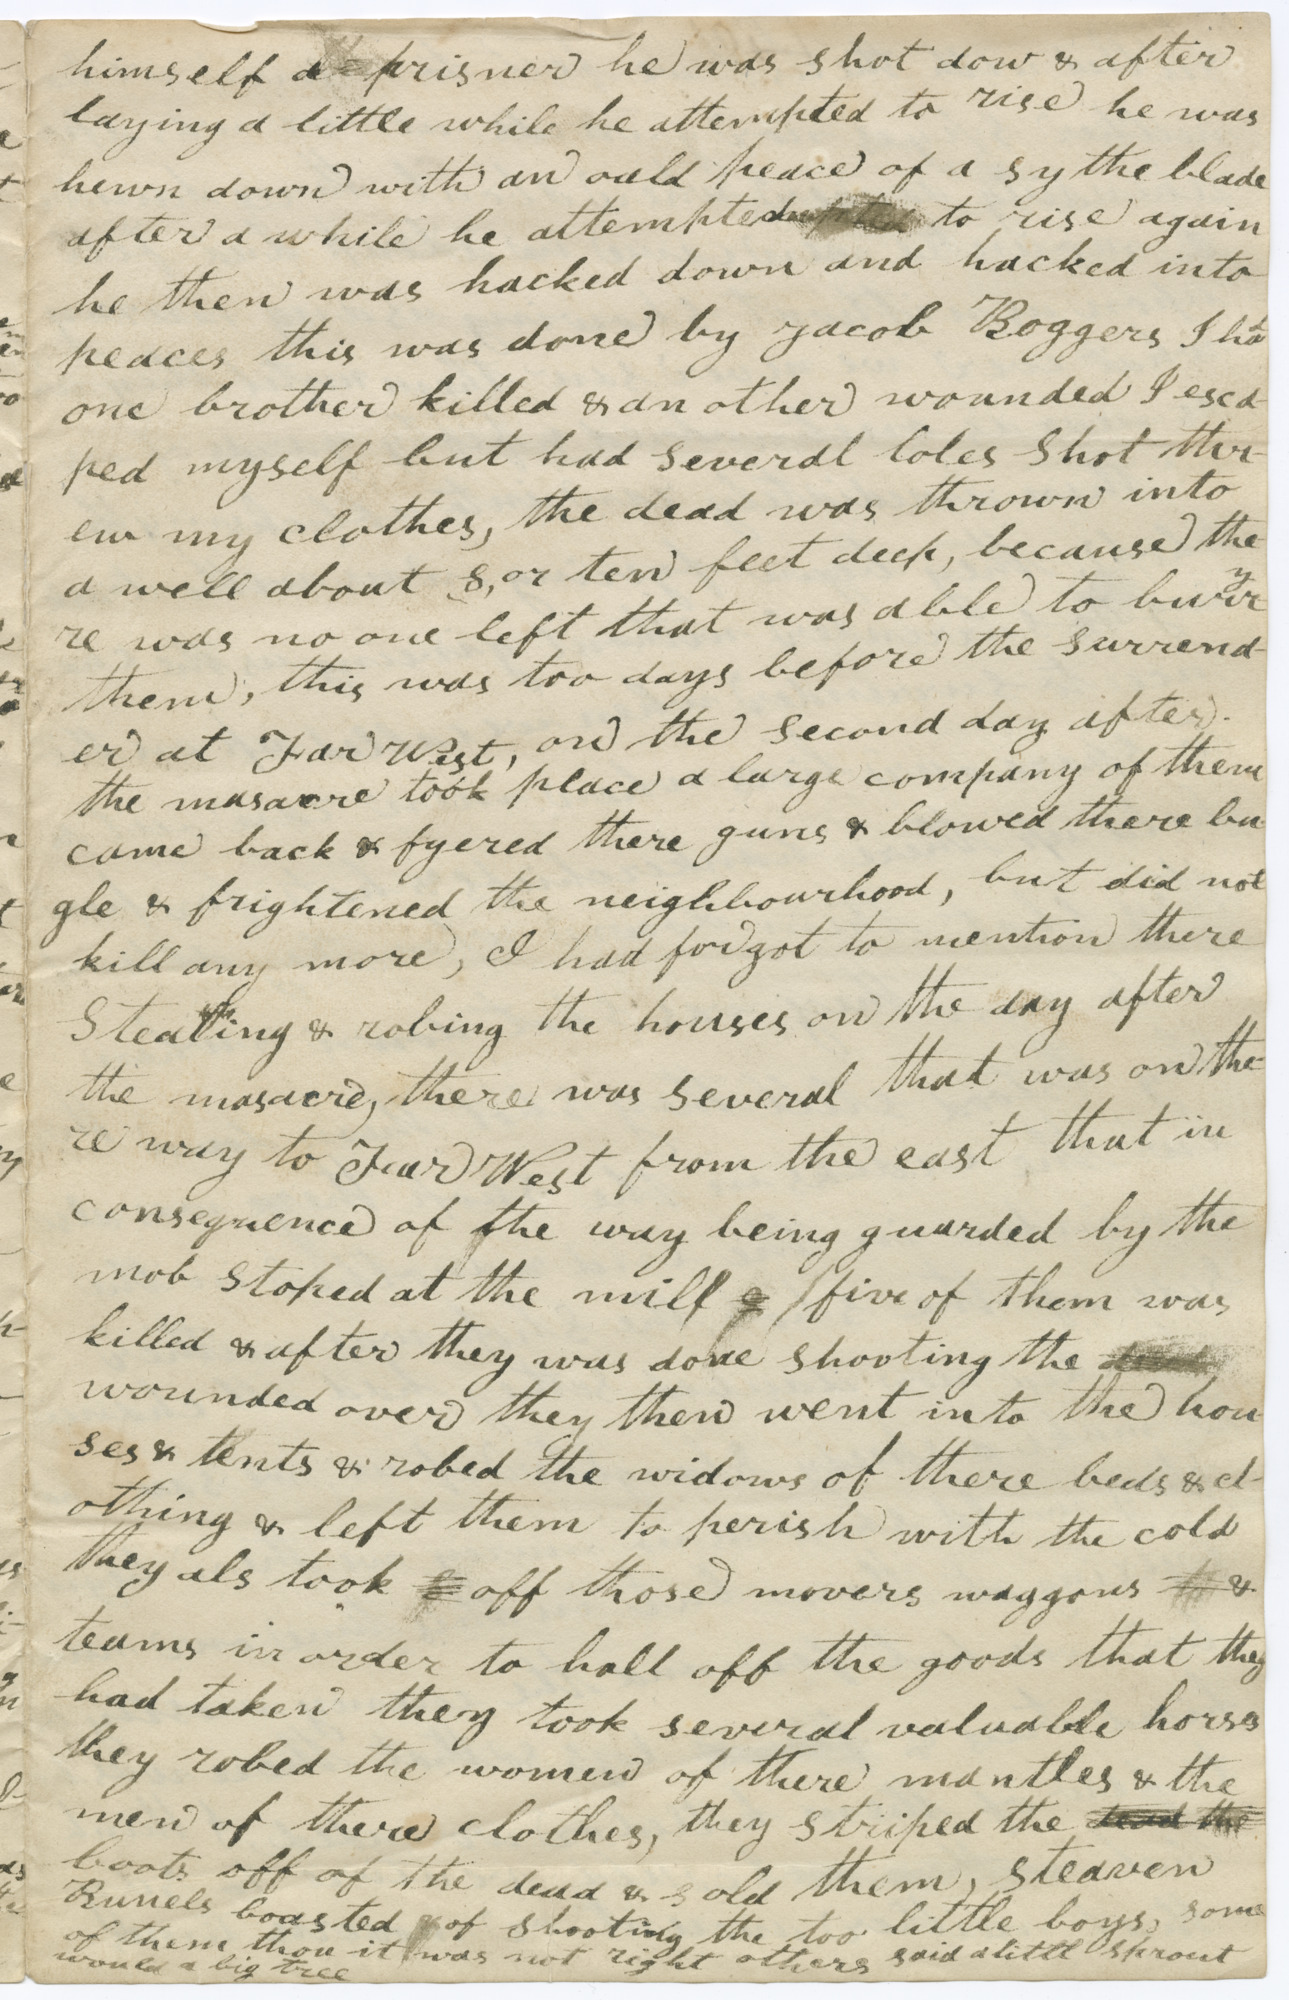 himself a prisner he was shot dow & after
laying a little while he attempted to rise he was
hewn down with an oald peace of a sythe blade
after a while he attempted to rise again
he then was hacked down and hacked into
peaces this was done by Jacob Roggers I had
one brother killed & another wounded I esca-
ped myself but had several holes shot thr-
ew my clothes, the dead was thrown into
a well about 8, or ten feet deep, because the
re was no one left that was able to burry
them, this was too days before the surrend-
er at Far West, on the second day after
the masacre took place a large company of them
came back & fyered there guns & blowed there bu
gle & frightened the neighbourhood, but did not
kill any more, I had forgot to mention there
Stealing & robing the houses on the day after
the masacre, there was several that was on the
re way to Far West from the east that in
consequence of the way being guarded by the
mob stoped at the mill five of them was
killed & after they was done shooting the
wounded over they then went into the hou
ses & tents & robed the widows of there beds & cl-
othing & left them to perish with the cold
they als took off those movers waggons &
teams in order to hall off the goods that they
had taken they took several valuable horses
they robed the women of there mantles & the
men of there clothes, they striped the dead the
boots off of the dead & sold them, Steaven
Runels boasted of shooting the too little boys, some
of them thou it was not right others said a littl sprout
would a big tree